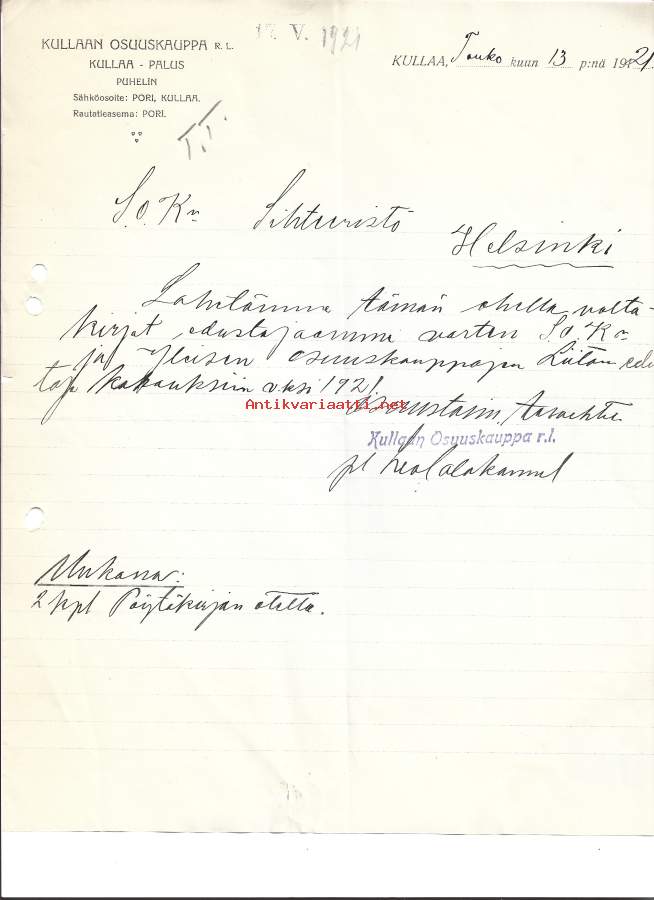 17. V. 1921
KULLAAN OSUUSKAUPPA R. L.
KULLAA - PALUS
PUHELIN
Sähköosoite: PORI, KULLAA.
Rautatieasema: PORI.
KULLAA, Touko kuun 13 p:nä 1921.
T.T.
S.O.K:n Sihteeristö
Helsinki
Lähetämme tämän ohella valta-
kirjat edustajaamme varten S.O.K:n
ja Yleisen Osuuskauppojen Liiton edus
taja kokouksiin v:ksi 1921
Antikvariaatti.net
Kullaan Osuuskauppa r.l.
Mukana:
2 kpl Pöytäkirjan otetta.